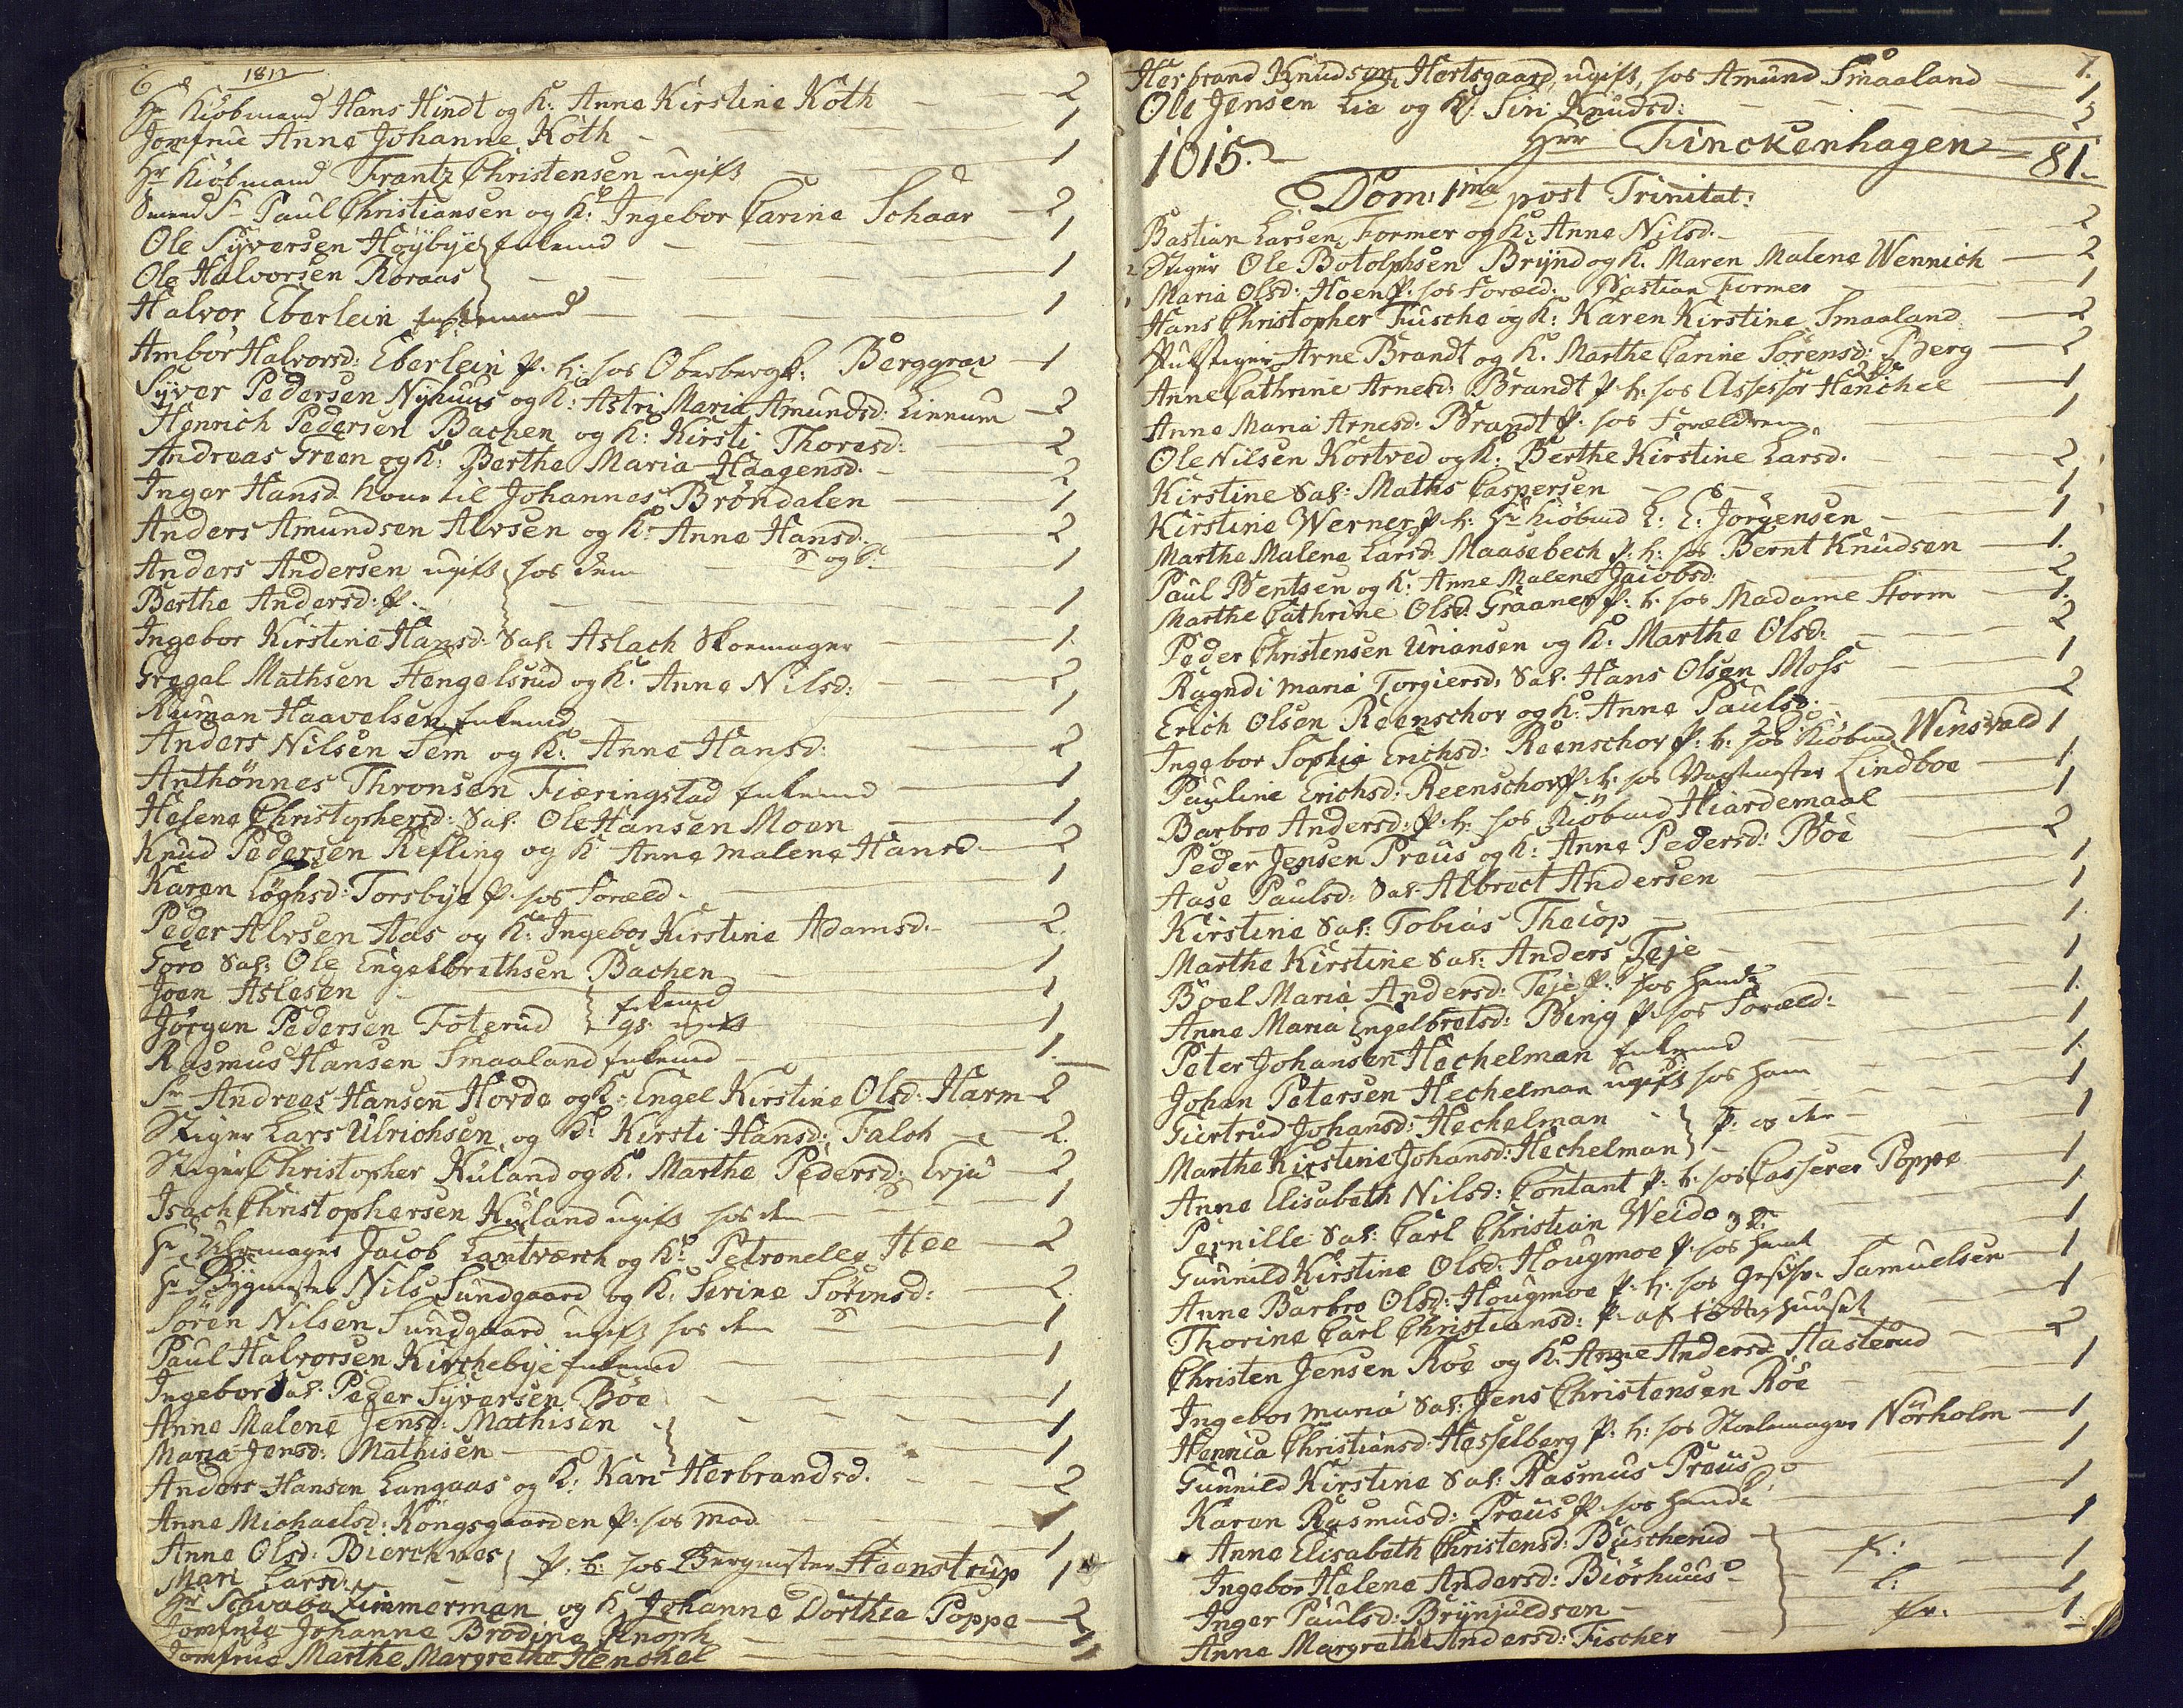 6 1812
Hr Kiöbmand Hans Hindt og K: Anne Kirstine Koth 2
Jomfrue Anne Johanne Koth 1
Hr Kiöbmand Frantz Christensen ugift 1
Sr Paul Christiansen og K: Ingebor Carine Schaar 2
Ole Syversen Höybye Enkemd 1
Ole Halvorsen Roraas 1
Halvor Eberlein 1
Ambor Halvorsd: Eberlein P. h: hos Oberbergh: Berggrav 1
Syver Pedersen Nyhuus og K: Astri Maria Amundsd: Linnum 2
Henrich Pedersen Bachen og K: Kirsti Thoresd: 2
Andreas Green og K: Berthe Maria Haagensd. 2
Inger Hansd. Kone til Johannes Bröndalen 1
Anders Amundsen Alvsen og K: Anne Hansd: 2
Anders Andersen ugift hos dem S og D 1
Berthe Andersd: P. 1
Ingebor Kirstine Hansd: Sal: Aslach Skoemager 1.
Gregal Mathsen Stengelsrud og K: Anne Nilsd: 2
Ruman Haavelsen Enkemd 1
Anders Nilsen Sem og K: Anne Hansd: 2
Anthönnes Thronsen Fiæringstad Enkemd 1
Helene Christophersd: Sal: Ole Hansen Moen 1
Knud Pedersen Refling og K Anne Malene Hansd. 2
Karen Löghsd: Torsbye P. hos Foræld. 1
Peder Alvsen Aas og K: Ingebor Kirstine Adamsd. 2.
Goro Sal: Ole Engelbrethsen Bachen 1
Joen Aslesen Enkemd 1
Jörgen Pedersen Foterud gs: ugift 1
Rasmus Hansen Smaaland Enkemd 1.
Sr Andreas Hansen Horde og K: Engel Kirstine Olsd: Harm 2
Stiger Lars Ulrichsen og K: Kirsti Hansd: Falch 2.
Stiger Christopher Kuland og K: Marthe Pedersd: Evju 2
Isach Christophersen Kuland ugift hos dem S 1
Hr Uhrmager Jacob Lantværch og K: Petronelle Hee 2
Hr Bygmester Nils Sundgaard og K: Serine Sörensd: 2.
Sören Nilsen Sundgaard ugift hos dem S 1
Paul Halvorsen Kirchebye Enkemd 1
Ingebor Sal: Peder Syversen Böe 1
Anne Malene Jensd: Mathisen 1
Maria Jensd: Mathisen 1
Anders Hansen Langaas og K: Kari Herbrandsd. 2
Anne Michaelsd: Kongsgaarden P. hos Mad. 1
Anne Olsd: Bierchnes 1
Mari Larsd: P. h: hos Bergmester Steenstrup 1
Hr Schwabe Zimmerman og K: Johanne Dorthea Poppe 2
Jomfrue Johanne Brodine Knoph 1
Jomfrue Marthe Margrethe Henchel 1
7.
Herbrand Knudsen Hertsgaard ugift, hos Amund Smaaland 1
Ole Jensen Lia og K: Siri Knudsd: 2
1015. Hrr Finckenhagen 81.
Dom: 1ma post Trinitat:
Bastian Larsen Former og K: Anne Nilsd. 2
Stiger Ole Botolphsen Brynd og K. Maren Malene Wennich 2
Maria Olsd: Hoen P. hos Foræld: Bastian Former 1
Hans Christopher Fusche og K: Karen Kirstine Smaaland 2
Arne Brandt og K. Marthe Carine Sörensd: Berg 2
Anne Cathrine Arnesd: Brandt P. h: hos Assessor Henchel 1
Anne Maria Arnesd: Brandt P. hos Forældrene 1
Ole Nilsen Kortved og K: Berthe Kirstine Larsd. 2
Kirstine Sal: Maths Caspersen 1
Kirstine Werner P. h: Hr Kiöbmd L: C: Jörgensen 1
Marthe Malene Larsd. Maasebech P. h: hos Bernt Knudsen 1.
Paul Bentsen og K: Anne Malene Jacobsd: 2
Marthe Cathrine Olsd: Graaner P. h: hos Madame Storm 1.
Peder Christensen Uriansen og K: Marthe Olsd: 2
Ragndi Maria Torgiersd: Sal: Hans Olsen Moss 1
Erich Olsen Reenschov og K: Anne Paulsd. 2
Ingebor Sophia Erichsd: Reenschov P. h: hos Kiöbmd Winsvold 1
Pauline Erichsd: Reenschov P. h: hos Vagtmester Lindboe 1.
Barbro Andersd: P. h: hos Kiöbmd Hiardemaal 1
Peder Jensen Preus og K: Anne Pedersd: Böe 2
Aase Paulsd: Sal: Albrect Andersen 1
Kirstine Sal: Tobias Theiop 1
Marthe Kirstine Sal: Anders Teje 1.
Boel Maria Andersd: Teje P. hos hende 1
Anne Maria Engelbretsd: Bing P. hos Foræld: 1.
Peter Johansen Hechelman Enkemd 1
Johan Petersen Hechelman ugift hos ham 1.
Giertrud Johansd: Hechelman P. og dem 1
Marthe Kirstine Johansd: Hechelman 1
Anne Elisabeth Nilsd: Contant P. h: hos Casserer Poppe 1
Pernille Sal: Carl Christian Weido 1
Gunnild Kirstine Olsd: Hougmoe P. hos hende 1
Anne Barbro Olsd: Hougmoe P. h: hos Samuelsen 1
Thorine Carl Christiansd: P. af huuset 1
Christen Jensen Roe og K: Anne Andersd: Hasterud 2
Ingebor Maria Sal: Jens Christensen Röe 1
Hennica Christiansd: Hesselberg P. h: hos Stolemager Nörholm 1
Gunnild Kirstine Sal: Rasmus Preus 1
Karen Rasmusd: Preus P. hos hende 1
Anne Elisabeth Christensd: Buscherud 1
Ingebor Helene Andersd: Biörhuus 1
Inger Paulsd: Brynjuldsen 1
Anne Margrethe Andersd: Fischer 1.